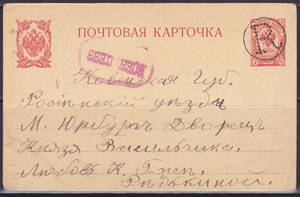 ПОЧТОВАЯ КАРТОЧКА
Ковенская Губ.
Росіенскій уѣздъ
М. Юрбургъ Дворецъ
Князя Васильчика.
Любовь К.
Рѣдькиной.